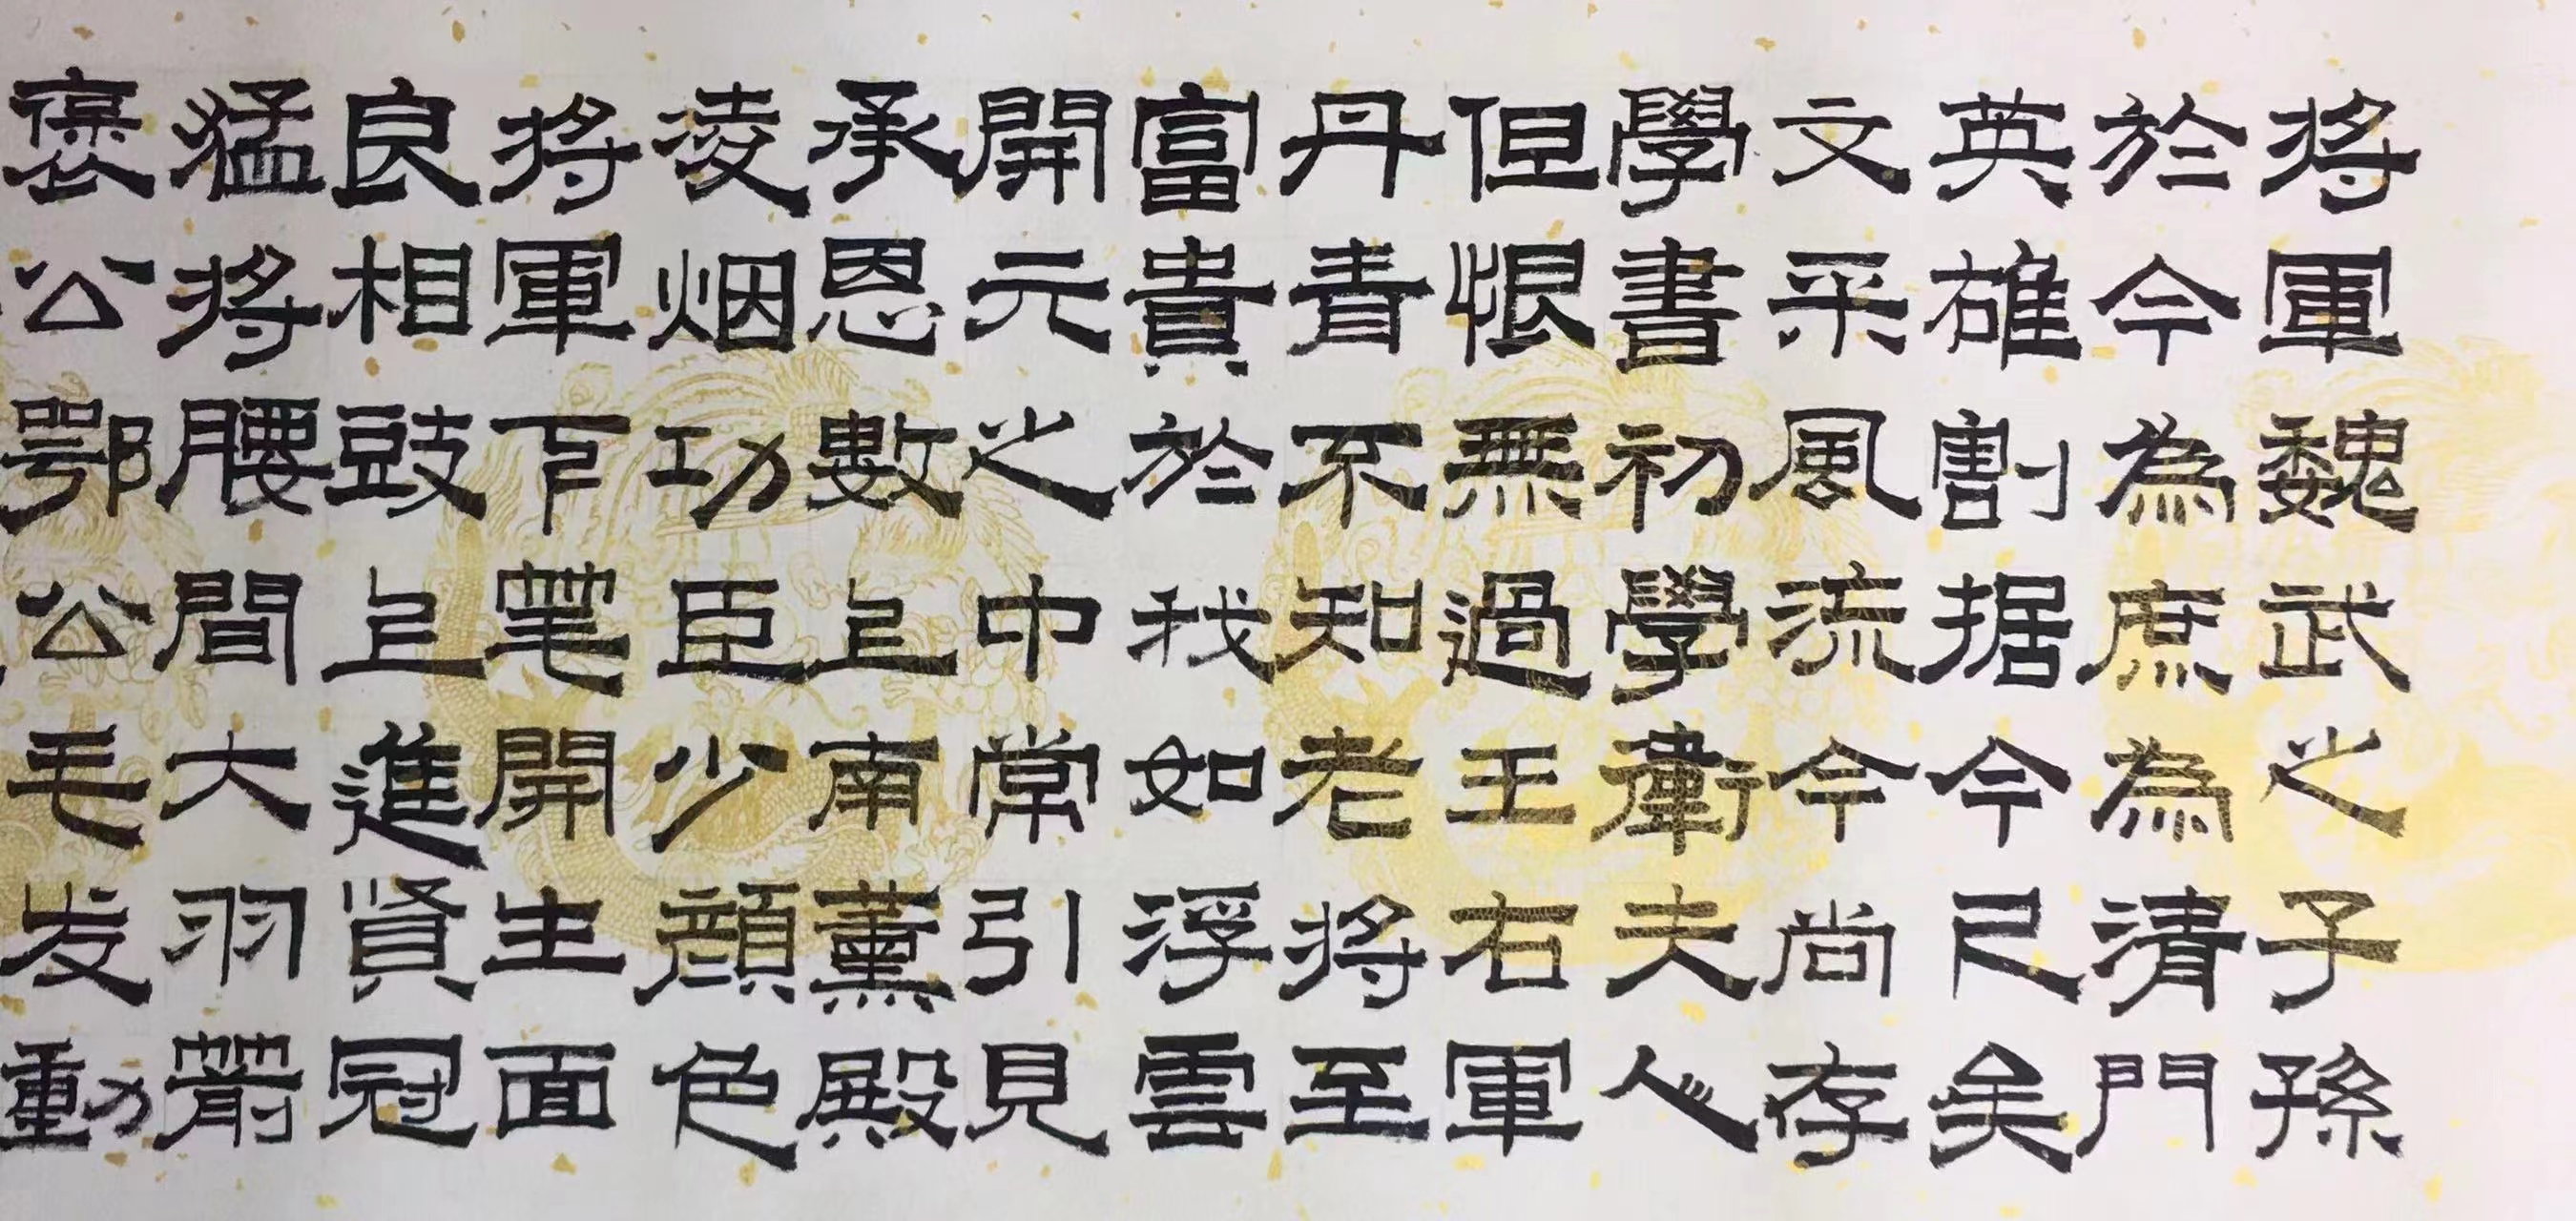 將軍魏武之子孫
於今為庶為清門
英雄割据今已矣
文采風流今尚存
學書初學衛夫人
但恨無過王右軍
丹青不知老將至
富貴於我如浮雲
開元之中常引見
承恩數上南薰殿
淩烟功臣少顔色
將軍下筆開生面
良相鼓上進賢冠
猛將腰間大羽箭
褒公鄂公毛发動